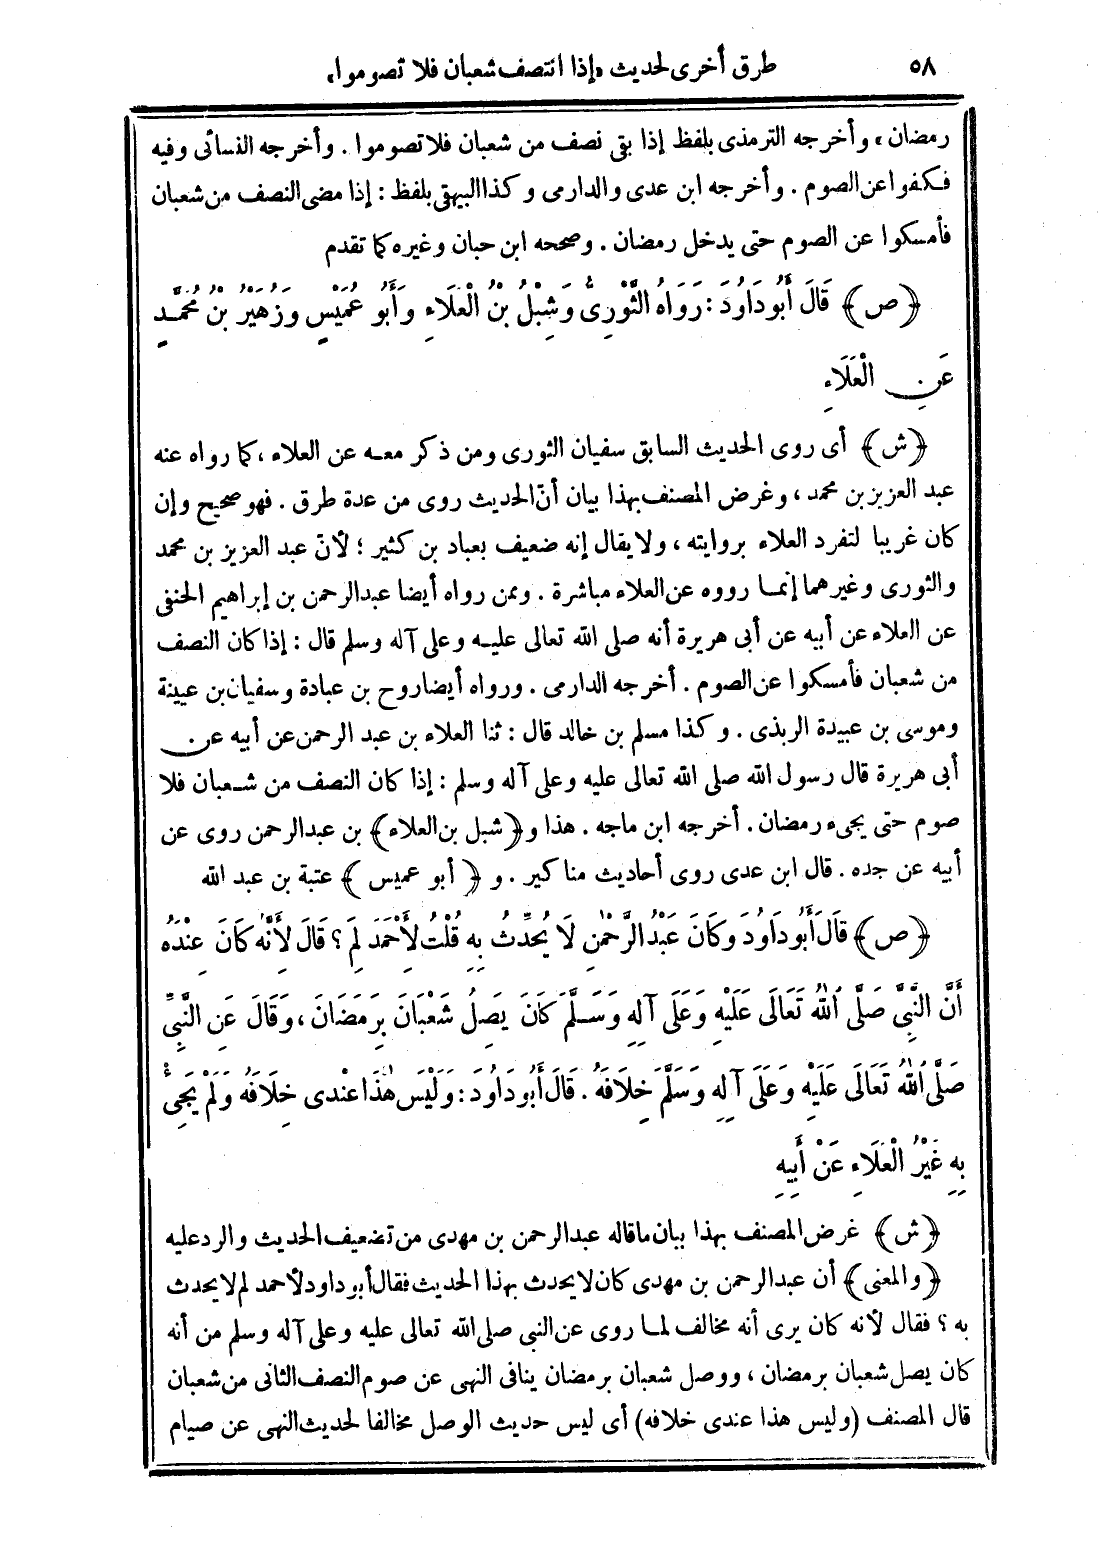 ٥٨ طرق أخرى لحديث «إذا انتصف شعبان فلا تصوموا»
رمضان، وأخرجه الترمذى بلفظ إذا بقى نصف من شعبان فلا تصوموا . وأخرجه النسائى وفيه
فكفوا عن الصوم . وأخرجه ابن عدى والدارمى وكذا البيهقى بلفظ : إذا مضى النصف من شعبان
فأمسكوا عن الصوم حتى يدخل رمضان . وصححه ابن حبان وغيره كما تقدم
﴿ص﴾ قَالَ أَبُو دَاوُدَ : رَوَاهُ الثَّوْرِىُّ وَشِبْلُ بْنُ الْعَلَاءِ وَأَبُو عُمَيْسٍ وَزُهَيْرُ بْنُ مُحَمَّدٍ
عَنِ الْعَلَاءِ
﴿ش﴾ أى روى الحديث السابق سفيان الثورى ومن ذكر معه عن العلاء ، كما رواه عنه
عبد العزيز بن محمد ، وغرض المصنف بهذا بيان أنّ الحديث روى من عدة طرق . فهو صحيح وإن
كان غريبا لتفرد العلاء بروايته ، ولا يقال إنه ضعيف بعباد بن كثير ؛ لأنّ عبد العزيز بن محمد
والثورى وغيرهما إنما رووه عن العلاء مباشرة . وممن رواه أيضا عبد الرحمن بن إبراهيم الحنفى
عن العلاء عن أبيه عن أبى هريرة أنه صلى الله تعالى عليه وعلى آله وسلم قال : إذا كان النصف
من شعبان فأمسكوا عن الصوم . أخرجه الدارمى . ورواه أيضا روح بن عبادة وسفيان بن عيينة
وموسى بن عبيدة الربذى . وكذا مسلم بن خالد قال : ثنا العلاء بن عبد الرحمن عن أبيه عن
أبى هريرة قال رسول الله صلى الله تعالى عليه وعلى آله وسلم : إذا كان النصف من شعبان فلا
صوم حتى يجىء رمضان . أخرجه ابن ماجه . هذا و﴿شبل بن العلاء﴾ بن عبد الرحمن روى عن
أبيه عن جده . قال ابن عدى روى أحاديث مناكير . و ﴿أبو عميس﴾ عتبة بن عبد الله
﴿ص﴾ قَالَ أَبُو دَاوُدَ وَكَانَ عَبْدُ الرَّحْمٰنِ لَا يُحَدِّثُ بِهِ قُلْتُ لِأَحْمَدَ لِمَ ؟ قَالَ لِأَنَّهُ كَانَ عِنْدَهُ
أَنَّ النَّبِىَّ صَلَّى اللهُ تَعَالَى عَلَيْهِ وَعَلَى آلِهِ وَسَلَّمَ كَانَ يَصِلُ شَعْبَانَ بِرَمَضَانَ ، وَقَالَ عَنِ النَّبِىِّ
صَلَّى اللهُ تَعَالَى عَلَيْهِ وَعَلَى آلِهِ وَسَلَّمَ خِلَافَهُ . قَالَ أَبُو دَاوُدَ : وَلَيْسَ هٰذَا عِنْدِى خِلَافَهُ وَلَمْ يَجِىْٔ
بِهِ غَيْرُ الْعَلَاءِ عَنْ أَبِيهِ
﴿ش﴾ غرض المصنف بهذا بيان ما قاله عبد الرحمن بن مهدى من تضعيف الحديث والرد عليه
﴿والمعنى﴾ أن عبد الرحمن بن مهدى كان لا يحدث بهذا الحديث فقال أبو داود لأحمد لم لا يحدث
به ؟ فقال لأنه كان يرى أنه مخالف لما روى عن النبى صلى الله تعالى عليه وعلى آله وسلم من أنه
كان يصل شعبان برمضان ، ووصل شعبان برمضان ينافى النهى عن صوم النصف الثانى من شعبان
قال المصنف (وليس هذا عندى خلافه) أى ليس حديث الوصل مخالفا لحديث النهى عن صيام